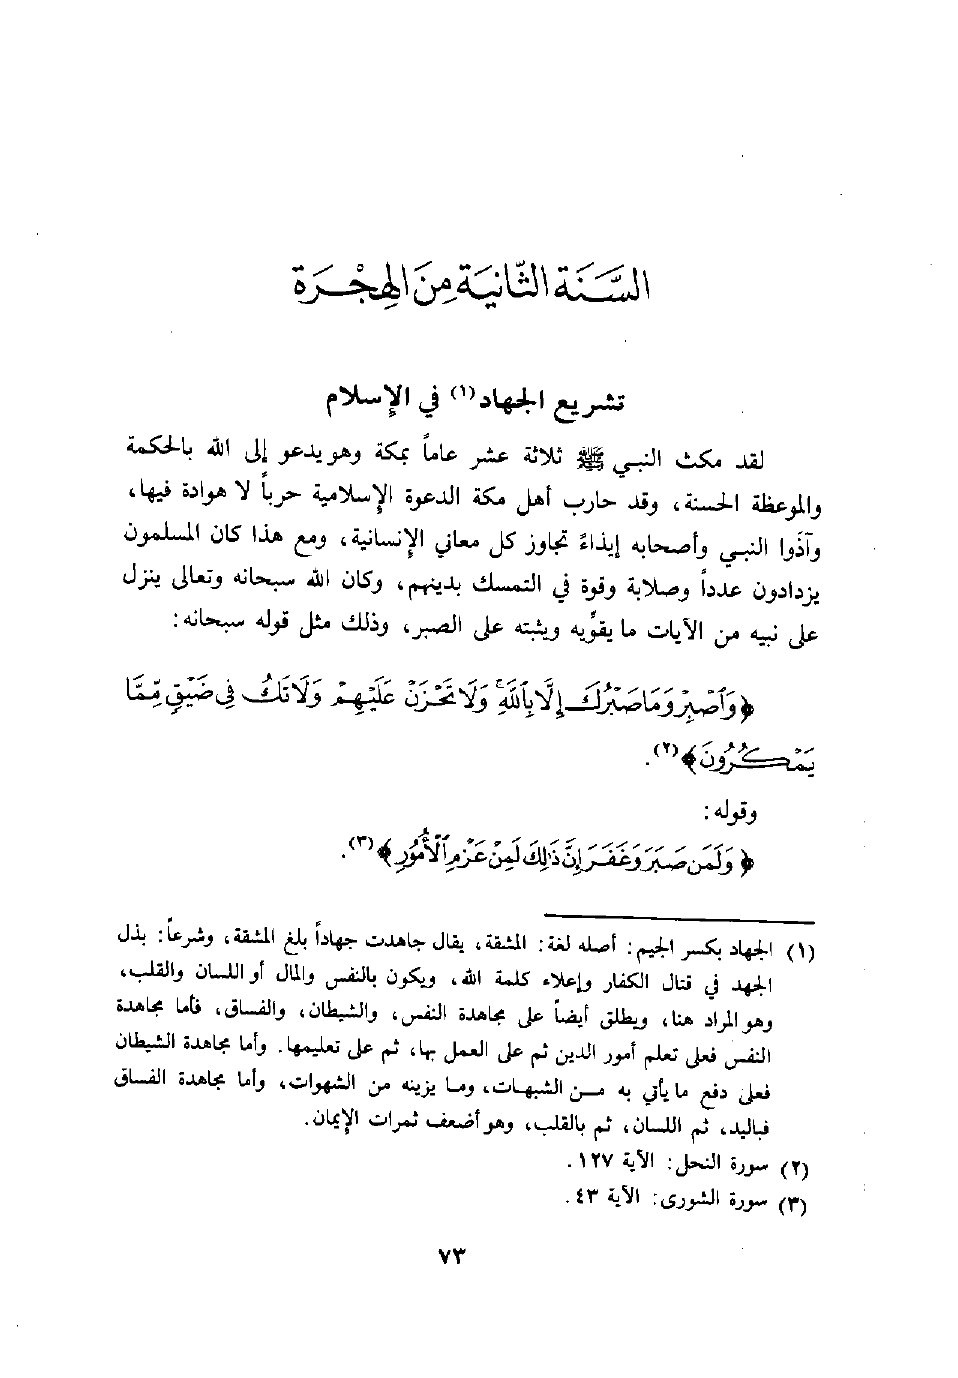 السَّنَة الثَّانِيَة مِنَ الهِجْرَة
تشريع الجهاد(١) في الإسلام
لقد مكث النبي ﷺ ثلاثة عشر عاماً بمكة وهو يدعو إلى الله بالحكمة
والموعظة الحسنة، وقد حارب أهل مكة الدعوة الإسلامية حرباً لا هوادة فيها،
وآذوا النبي وأصحابه إيذاءً تجاوز كل معاني الإنسانية، ومع هذا كان المسلمون
يزدادون عدداً وصلابة وقوة في التمسك بدينهم، وكان الله سبحانه وتعالى ينزل
على نبيه من الآيات ما يقوِّيه ويثبته على الصبر، وذلك مثل قوله سبحانه:
﴿وَٱصْبِرْ وَمَا صَبْرُكَ إِلَّا بِٱللَّهِۚ وَلَا تَحْزَنْ عَلَيْهِمْ وَلَا تَكُ فِى ضَيْقٍ مِّمَّا
يَمْكُرُونَ﴾(٢).
وقوله:
﴿وَلَمَن صَبَرَ وَغَفَرَ إِنَّ ذَٰلِكَ لَمِنْ عَزْمِ ٱلْأُمُورِ﴾(٣).
(١) الجهاد بكسر الجيم: أصله لغة: المشقة، يقال جاهدت جهاداً بلغ المشقة، وشرعاً: بذل
الجهد في قتال الكفار وإعلاء كلمة الله، ويكون بالنفس والمال أو اللسان والقلب،
وهو المراد هنا، ويطلق أيضاً على مجاهدة النفس، والشيطان، والفساق، فأما مجاهدة
النفس فعلى تعلم أمور الدين ثم على العمل بها، ثم على تعليمها. وأما مجاهدة الشيطان
فعلى دفع ما يأتي به من الشبهات، وما يزينه من الشهوات، وأما مجاهدة الفساق
فباليد، ثم اللسان، ثم بالقلب، وهو أضعف ثمرات الإيمان.
(٢) سورة النحل: الآية ١٢٧.
(٣) سورة الشورى: الآية ٤٣.
٧٣